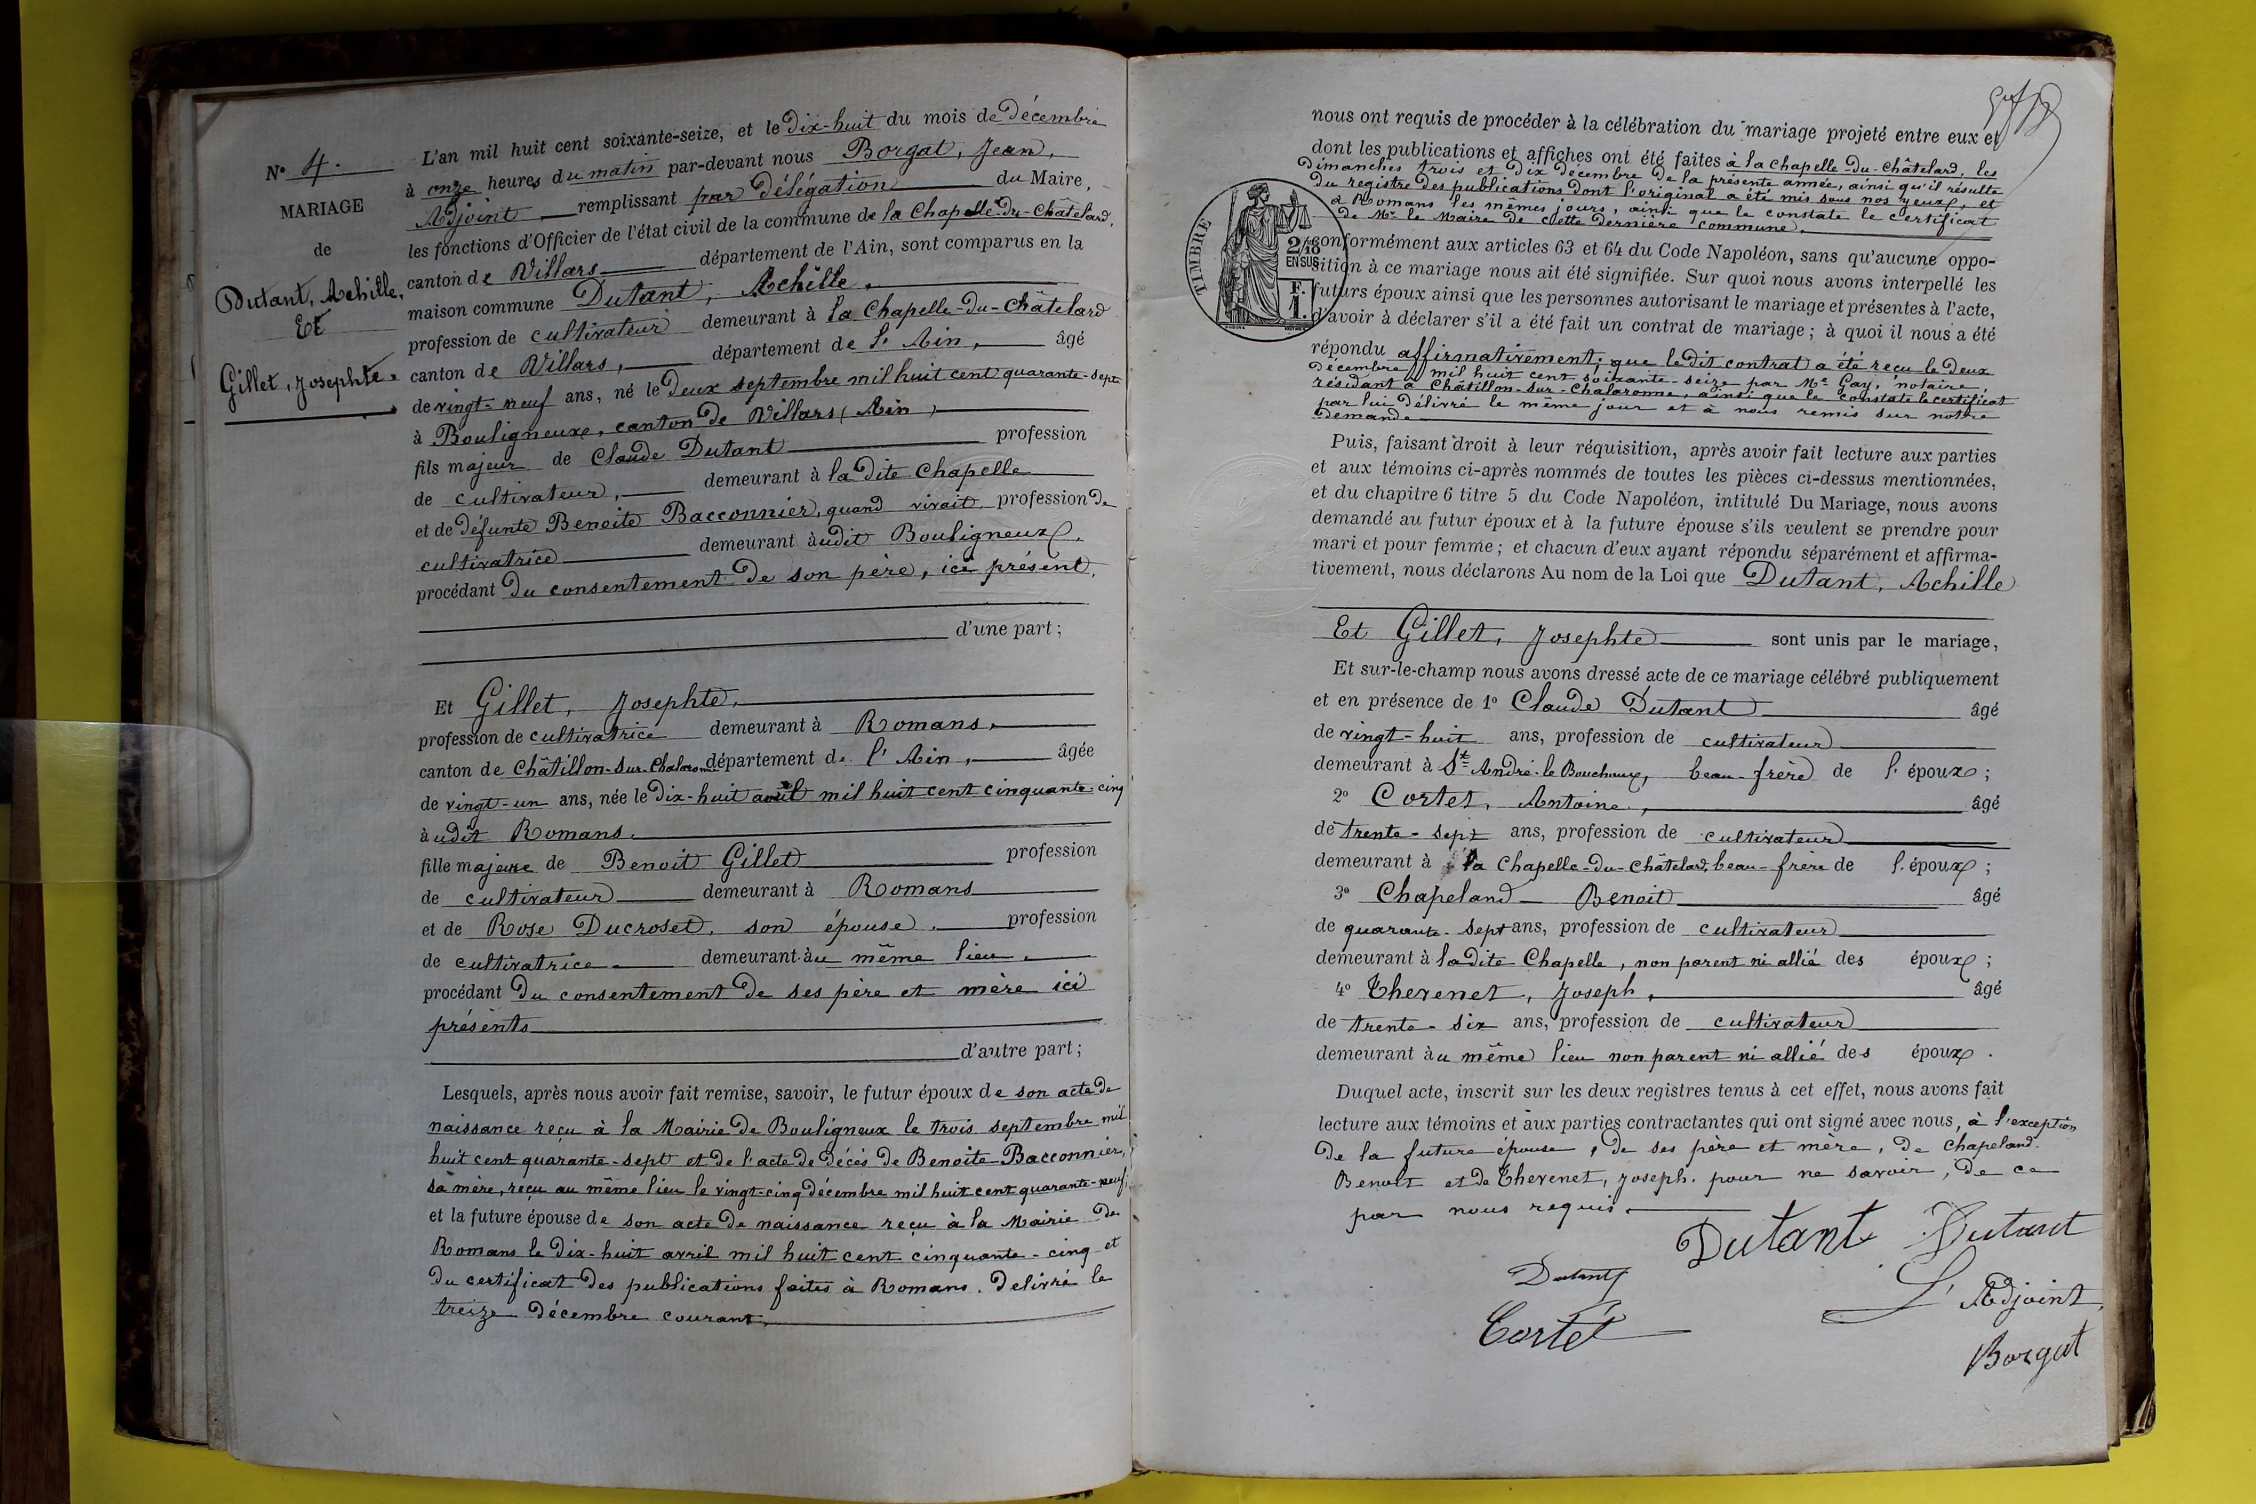 N° 4.
MARIAGE
de
Dutant, Achille,
Et
Gillet, Josephte.
L'an mil huit cent soixante-seize, et le dix-huit du mois de décembre
à onze heures du matin par-devant nous Borgat, Jean,
Adjoint remplissant par délégation du Maire,
les fonctions d'Officier de l'état civil de la commune de la Chapelle-du-Châtelard,
canton de Villars département de l'Ain, sont comparus en la
maison commune Dutant, Achille,
profession de cultivateur demeurant à la Chapelle-du-Châtelard
canton de Villars, département de l'Ain, âgé
de vingt-neuf ans, né le deux septembre mil huit cent quarante-sept
à Bouligneux, canton de Villars (Ain)
fils majeur de Claude Dutant profession
de cultivateur, demeurant à la dite Chapelle
et de défunte Benoite Bacconnier, quand vivait profession de
cultivatrice demeurant àudit Bouligneux,
procédant du consentement de son père, ici présent,
d'une part;
Et Gillet, Josephte,
profession de cultivatrice demeurant à Romans,
canton de Châtillon-sur-Chalaronne département de l'Ain, âgée
de vingt-un ans, née le dix-huit août mil huit cent cinquante-cinq
àudit Romans.
fille majeure de Benoit Gillet profession
de cultivateur demeurant à Romans
et de Rose Ducroset, son épouse, profession
de cultivatrice demeurant àu même lieu,
procédant du consentement de ses père et mère ici
présents
d'autre part;
Lesquels, après nous avoir fait remise, savoir, le futur époux de son acte de
naissance reçu à la Mairie de Bouligneux le trois septembre mil
huit cent quarante-sept et de l'acte de décès de Benoite Bacconnier,
sa mère, reçu au même lieu le vingt-cinq décembre mil huit cent quarante-neuf;
et la future épouse de son acte de naissance reçu à la Mairie de
Romans le dix-huit avril mil huit cent cinquante-cinq et
du certificat des publications faites à Romans. délivré le
treize décembre courant,
nous ont requis de procéder à la célébration du mariage projeté entre eux et
dont les publications et affiches ont été faites à la Chapelle-du-Châtelard, les
dimanches trois et dix décembre de la présente année, ainsi qu'il résulte
du registre des publications dont l'original a été mis sous nos yeux, et
à Romans les mêmes jours, ainsi que le constate le certificat
de Mr le Maire de cette dernière commune,
TIMBRE
2/10
EN SUS
F.
1.
conformément aux articles 63 et 64 du Code Napoléon, sans qu'aucune oppo-
sition à ce mariage nous ait été signifiée. Sur quoi nous avons interpellé les
futurs époux ainsi que les personnes autorisant le mariage et présentes à l'acte,
d'avoir à déclarer s'il a été fait un contrat de mariage; à quoi il nous a été
répondu affirmativement; que le dit contrat a été reçu le deux
décembre mil huit cent soixante-seize par Me Gay, notaire,
résidant à Châtillon-sur-Chalaronne, ainsi que le constate le certificat
par lui délivré le même jour et à nous remis sur notre
demande
Puis, faisant droit à leur réquisition, après avoir fait lecture aux parties
et aux témoins ci-après nommés de toutes les pièces ci-dessus mentionnées,
et du chapitre 6 titre 5 du Code Napoléon, intitulé Du Mariage, nous avons
demandé au futur époux et à la future épouse s'ils veulent se prendre pour
mari et pour femme; et chacun d'eux ayant répondu séparément et affirma-
tivement, nous déclarons Au nom de la Loi que Dutant, Achille
Et Gillet, Josephte sont unis par le mariage,
Et sur-le-champ nous avons dressé acte de ce mariage célébré publiquement
et en présence de 1° Claude Dutant âgé
de vingt-huit ans, profession de cultivateur
demeurant à St André-le-Bouchoux, beau-frère de l'époux;
2° Cortet, Antoine, âgé
de trente-sept ans, profession de cultivateur
demeurant à la Chapelle-du-Châtelard, beau-frère de l'époux;
3° Chapeland Benoit âgé
de quarante-sept ans, profession de cultivateur
demeurant à la dite Chapelle, non parent ni allié des époux;
4° Thevenet, Joseph, âgé
de trente-six ans, profession de cultivateur
demeurant àu même lieu non parent ni allié des époux.
Duquel acte, inscrit sur les deux registres tenus à cet effet, nous avons fait
lecture aux témoins et aux parties contractantes qui ont signé avec nous, à l'exception
de la future épouse, de ses père et mère, de Chapeland
Benoit et de Thevenet, Joseph. pour ne savoir, de ce
par nous requis.
Dutant Dutant
Dutant
L'Adjoint,
Cortet
Borgat